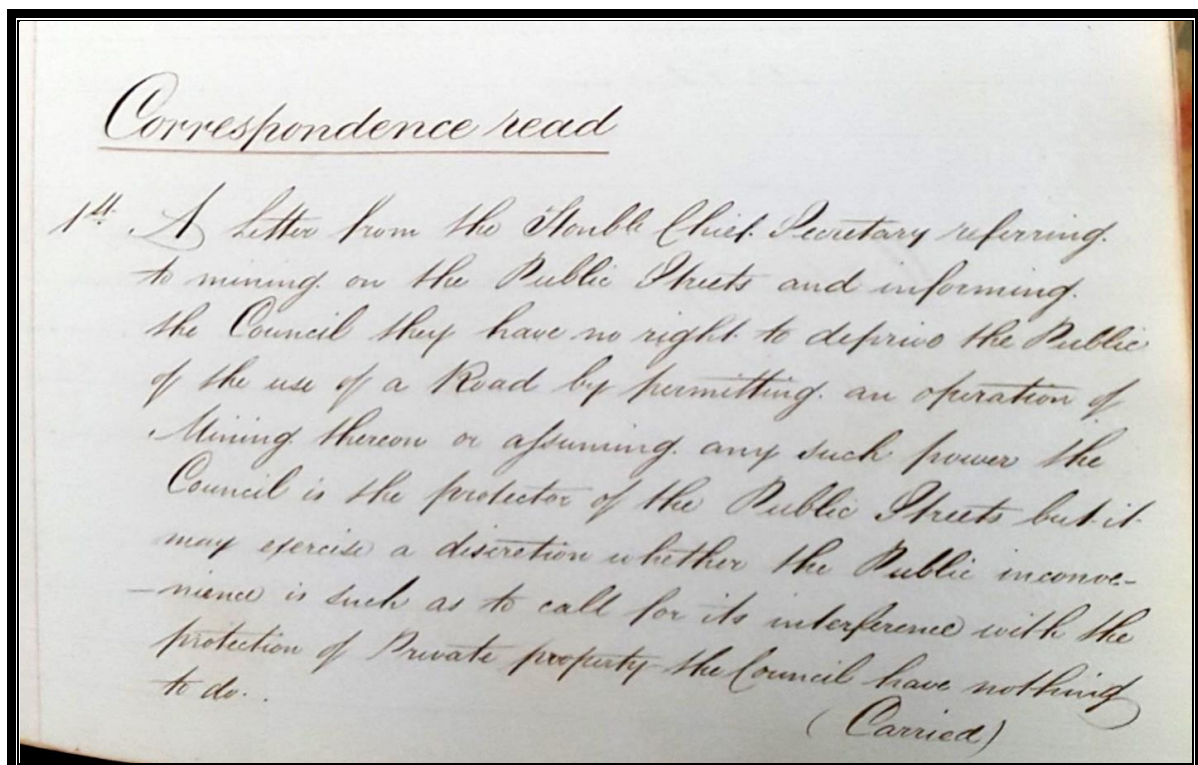 Correspondence read
1st. A Letter from the Honble Chief Secretary referring
to mining on the Public Streets and informing
the Council they have no right to deprive the Public
of the use of a Road by permitting an operation of
Mining thereon or assuming any such power the
Council is the protector of the Public Streets but it
may exercise a discretion whether the Public inconve-
-nience is such as to call for its interference with the
protection of Private property the Council have nothing
to do.
(Carried)